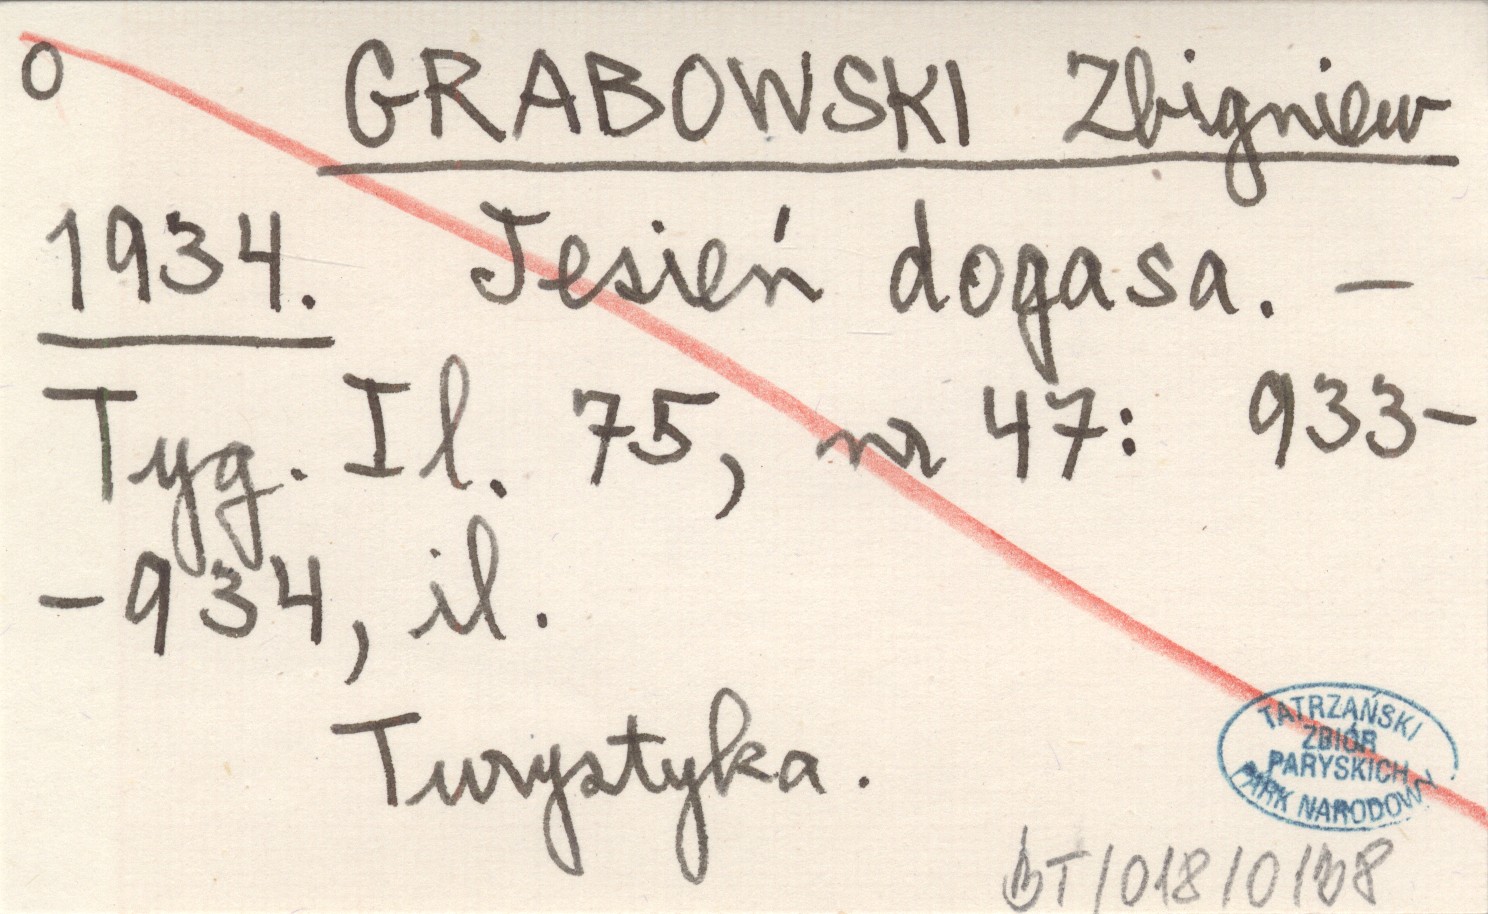 O GRABOWSKI Zbigniew
1934. Jesień dogasa. —
Tyg. Il. 75, nr 47: 933-
-934, il.
Turystyka.
TATRZAŃSKI
ZBIÓR
PARYSKICH
PARK NARODOWY
BT/018/0/138